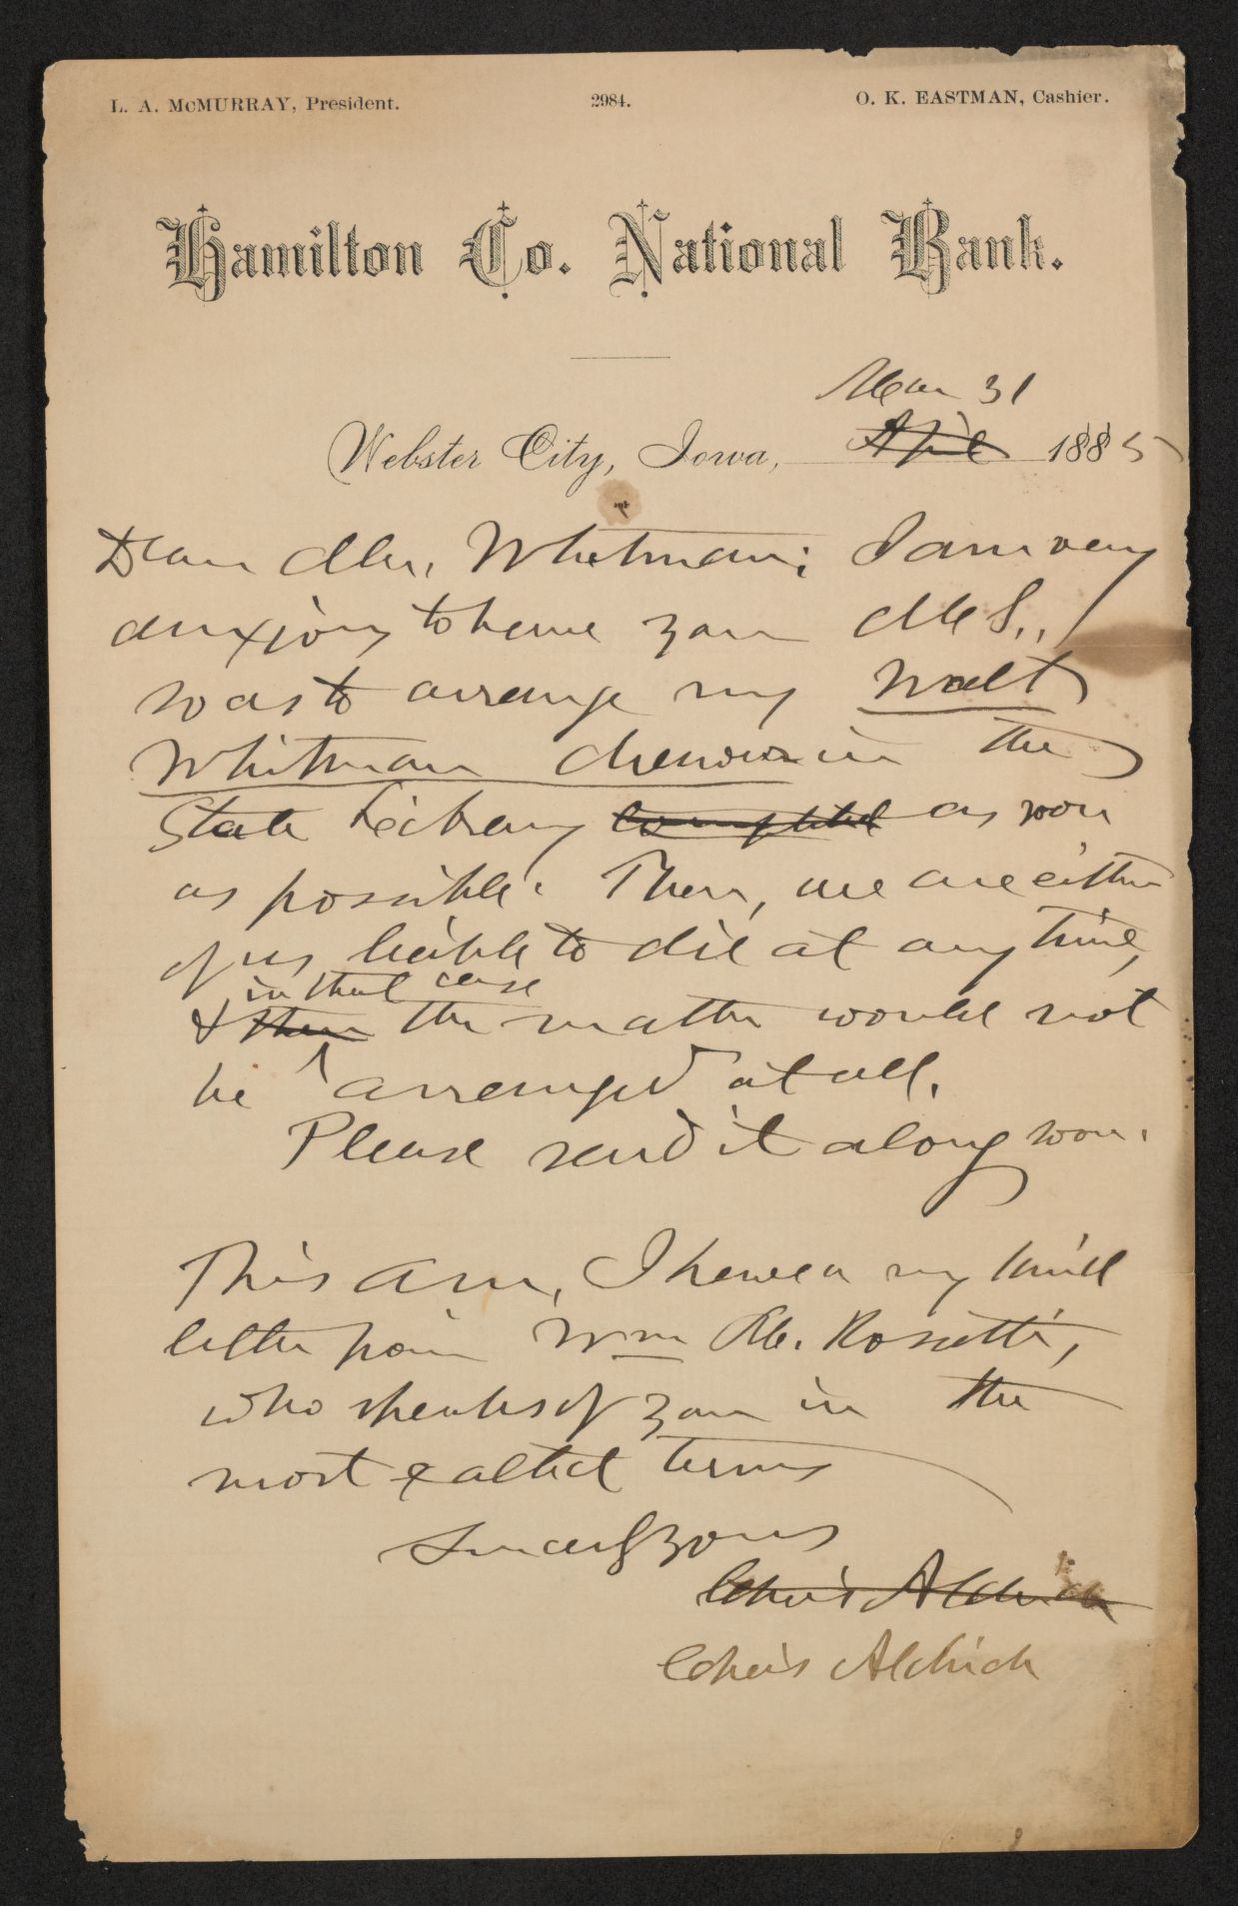 L. A. McMURRAY, President. 2984. O. K. EASTMAN, Cashier.
Hamilton Co. National Bank.
Mar 31
Webster City, Iowa, April 1885
Dear Mr. Whitman: I am very
anxious to have your MS.,
so as to arrange my Walt
Whitman in the
State Library completed as soon
as possible. Then, we are either
of us liable to die at any time,
in that case
& then the matter would not
be arranged at all.
Please send it along soon.
This am, I have a very kind
letter from Wm M. Rossetti,
who speaks of you in the
most exalted terms
Sincerely yours
Chas Aldrich
Chas Aldrich